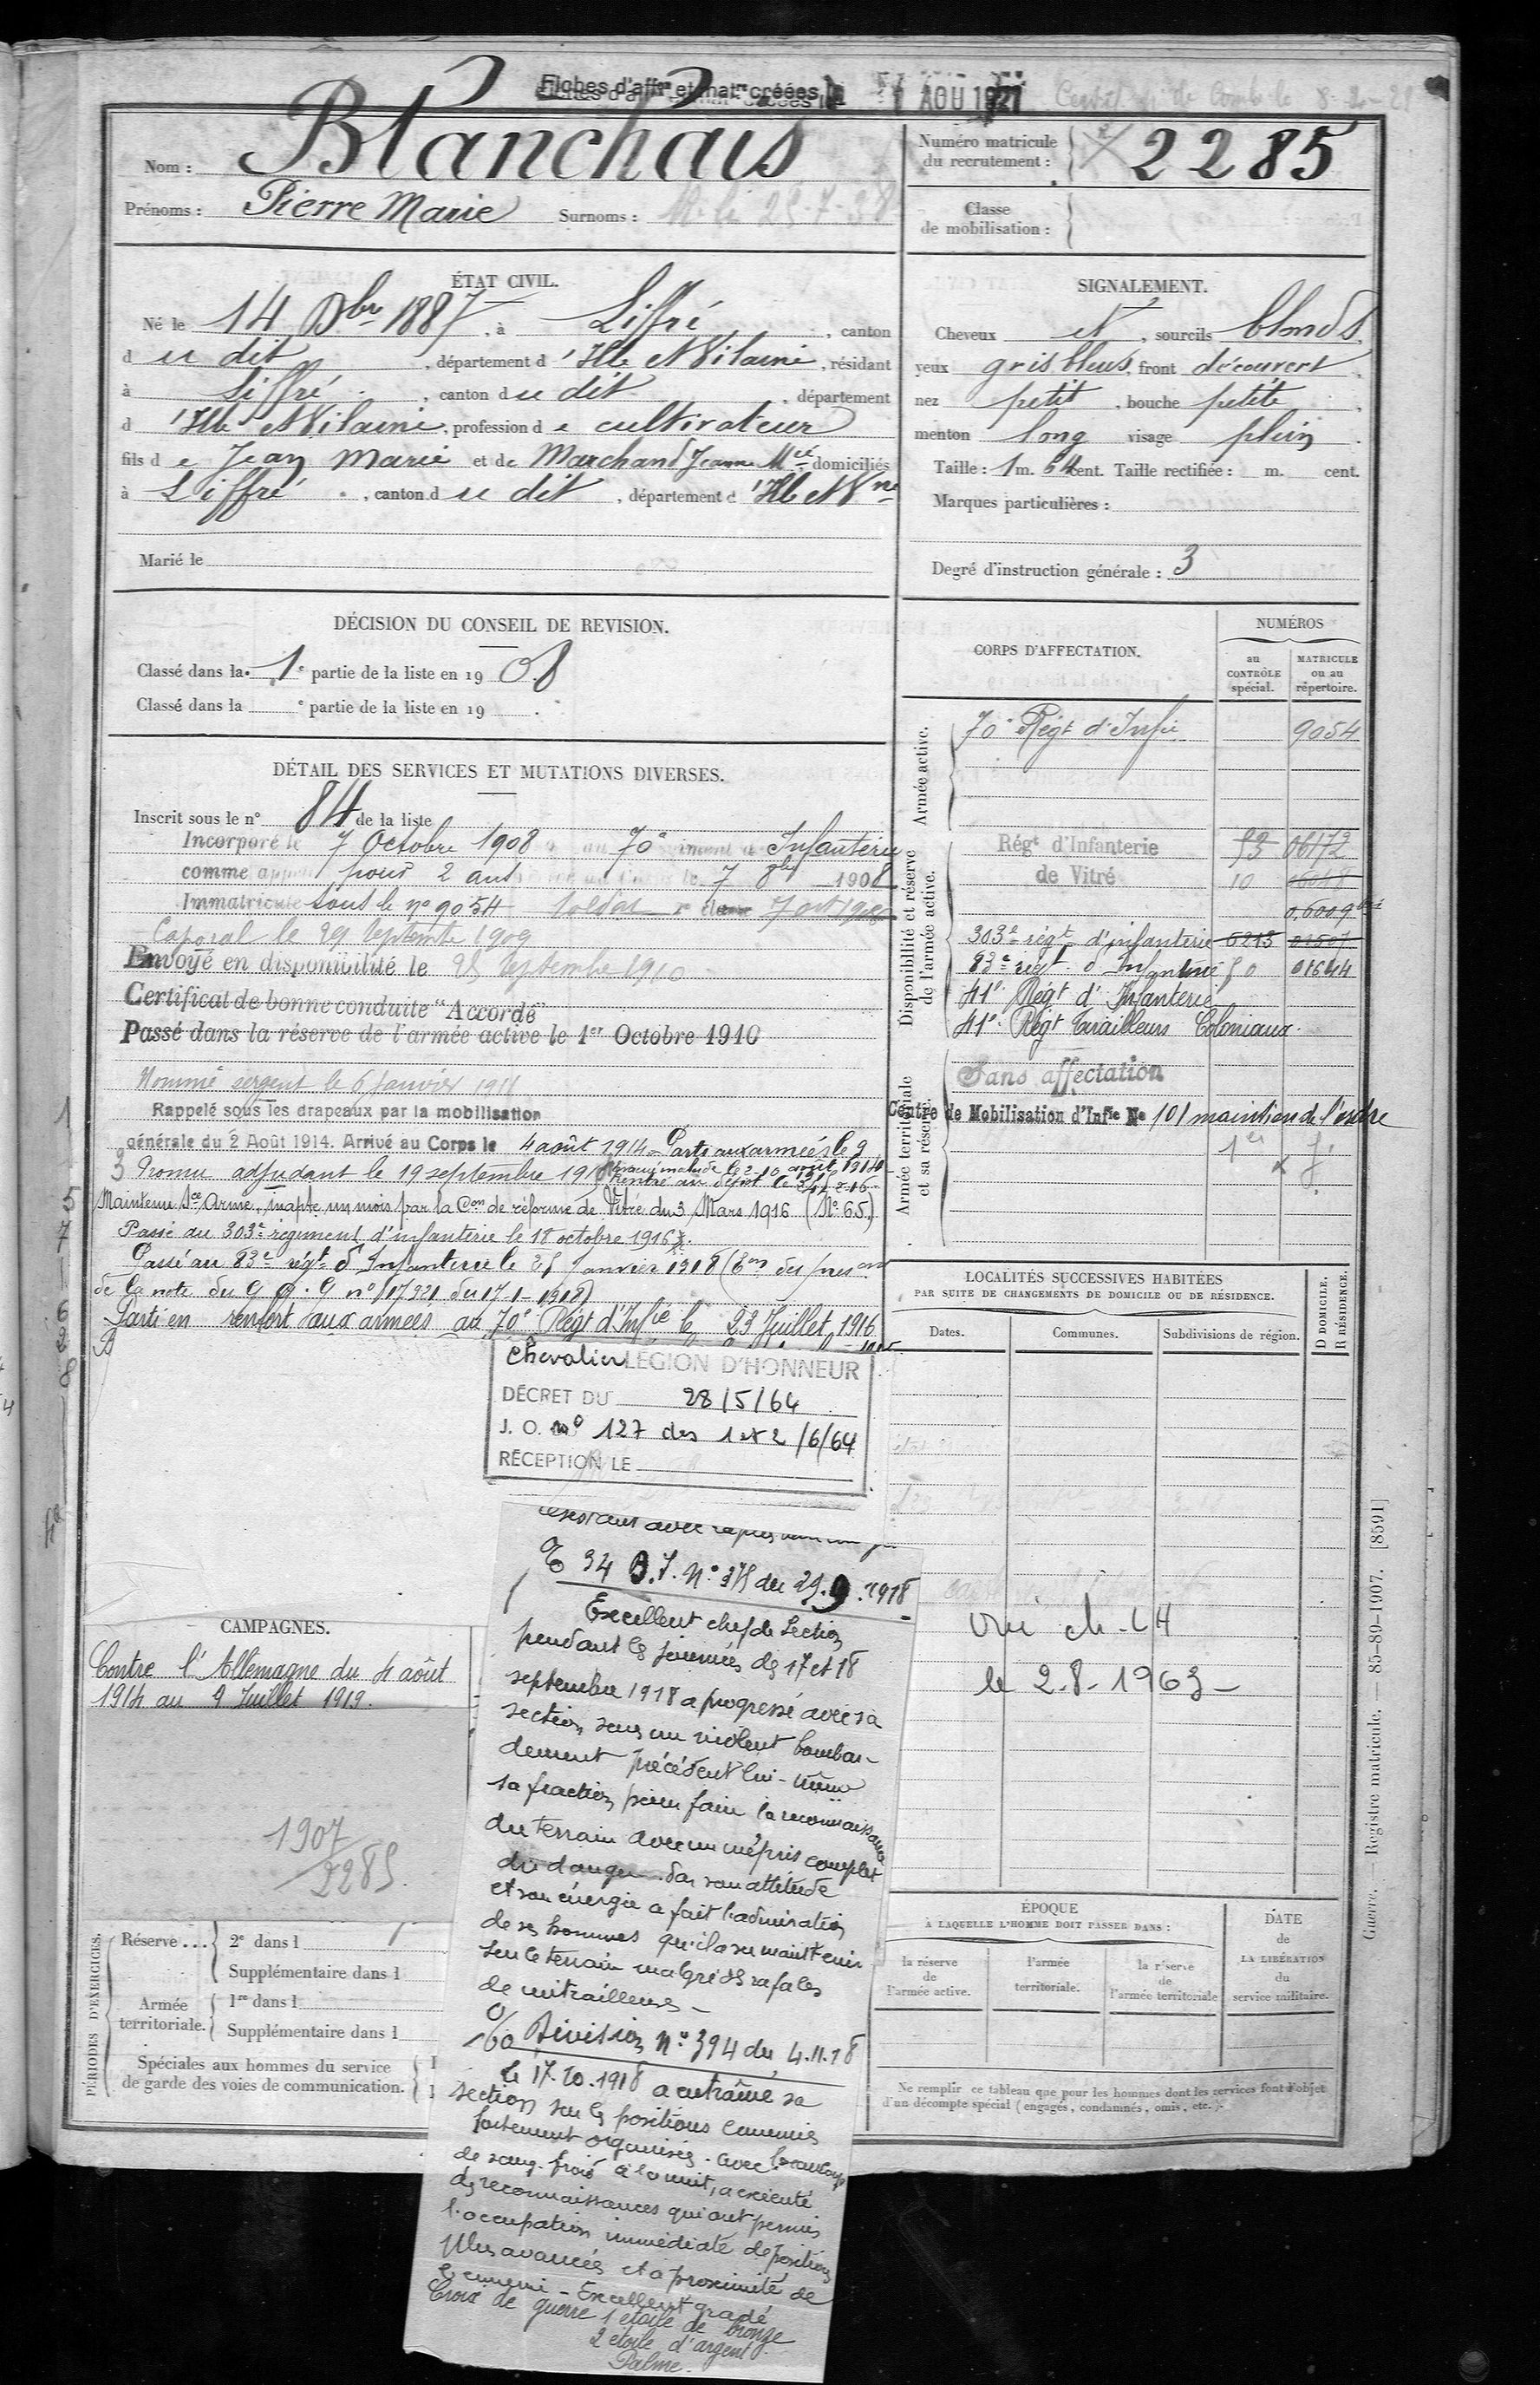 Fiches d'aff^on et mat^le créées le AOU 1927
Certif. de Comb. le 8-2-28
Nom : Blanchais
Prénoms : Pierre Marie Surnoms : 25-7-38
Numéro matricule du recrutement : 2285
Classe de mobilisation :
ÉTAT CIVIL.
Né le 14 Dbre 1887, à Liffré, canton
d u dit, département d 'Ille et Vilaine, résidant
à Liffré, canton du dit, département
d 'Ille et Vilaine, profession d e cultivateur
fils d e Jean Marie et de Marchand Jeanne Mie domiciliés
à Liffré, canton d u dit, département d 'Ille et Vne
Marié le
SIGNALEMENT.
Cheveux et, sourcils blonds,
yeux gris bleus, front découvert,
nez petit, bouche petite,
menton long visage plein.
Taille : 1 m. 64 cent. Taille rectifiée : m. cent.
Marques particulières :
Degré d'instruction générale : 3
DÉCISION DU CONSEIL DE REVISION.
Classé dans la 1e partie de la liste en 19 08
Classé dans la e partie de la liste en 19 .
DÉTAIL DES SERVICES ET MUTATIONS DIVERSES.
Inscrit sous le n° 84 de la liste
Incorporé le 7 Octobre 1908 au 70e régiment d'Infanterie
comme appelé pour 2 ans 7 8bre 1908
Immatriculé sous le n° 9054 soldat 2e classe 7 oct 1908
Caporal le 29 Septembre 1909
Envoyé en disponibilité le 25 Septembre 1910
Certificat de bonne conduite "Accordé"
Passé dans la réserve de l'armée active le 1er Octobre 1910
Nommé sergent le 6 Janvier 1911
Rappelé sous les drapeaux par la mobilisation
générale du 2 Août 1914. Arrivé au Corps le 4 août 1914. Parti aux armées le 9 août 1914
Promu adjudant le 19 septembre 191 Évacué malade le 2-10
Rentré au dépôt le
Maintenu Sce Armé, inapte un mois par la Con de réforme de Vitré du 3 Mars 1916 (N° 65)
Passé au 303e régiment d'infanterie le 18 octobre 1916.
Passé au 83e régt d'Infanterie le 25 Janvier 1918
de la note du G.Q.G n° 17921 du 17-1-1918)
Parti en renfort aux armées au 70e Régt d'Infie le 23 Juillet 1916
Chevalier LEGION D'HONNEUR
DÉCRET DU 28/5/64
J. O. n° 127 des 1 et 2/6/64
RÉCEPTION LE
CORPS D'AFFECTATION.
NUMÉROS
au CONTRÔLE spécial.
MATRICULE ou au répertoire.
Armée active.
70e Régt d'Infie 9054
Disponibilité et réserve de l'armée active.
Régt d'Infanterie 53 06172
de Vitré 10
303e régt d'infanterie 6213 01507
83e régt d'Infanterie 50 01644
41e Régt d'Infanterie
41e Régt Tirailleurs Coloniaux.
Armée territoriale et sa réserve.
Sans affectation
Centre de Mobilisation d'Infie No 101 maintien de l'ordre
LOCALITÉS SUCCESSIVES HABITÉES
PAR SUITE DE CHANGEMENTS DE DOMICILE OU DE RÉSIDENCE.
Dates. Communes. Subdivisions de région. D DOMICILE. R RÉSIDENCE.
le 2.8.1963
O 34 D.I. N° 375 du 29.9.1918
Excellent chef de Section
pendant les journées des 17 et 18
septembre 1918 a progressé avec sa
section sous un violent bombar-
dement précédent lui-même
sa fraction pour faire la reconnaissance
du terrain avec un mépris complet
du danger. Par son attitude
et son énergie a fait l'admiration
de ses hommes qu'il a su maintenir
sur le terrain malgré les rafales
de mitrailleuses -
O/ 160 Division N° 394 du 4.11.18
Le 17.10.1918 a entraîné sa
section sur les positions ennemies
fortement organisées. avec beaucoup
de sang-froid à la nuit, a exécuté
des reconnaissances qui ont permis
l'occupation immédiate de positions
plus avancées et à proximité de
l'ennemi - Excellent gradé
Croix de guerre 1 étoile de bronze
2 étoile d'argent
Palme.
CAMPAGNES.
Contre l'Allemagne du 4 août
1914 au 9 Juillet 1919.
1907
2285.
PÉRIODES D'EXERCICES.
Réserve... 2e dans l
Supplémentaire dans l
Armée territoriale. 1re dans l
Supplémentaire dans l
Spéciales aux hommes du service
de garde des voies de communication.
ÉPOQUE
À LAQUELLE L'HOMME DOIT PASSER DANS :
la réserve de l'armée active.
l'armée territoriale.
la réserve de l'armée territoriale
DATE de LA LIBÉRATION du service militaire.
Ne remplir ce tableau que pour les hommes dont les services font l'objet
d'un décompte spécial (engagés, condamnés, omis, etc.).
Guerre. — Registre matricule. — 85-89-1907. [8591]